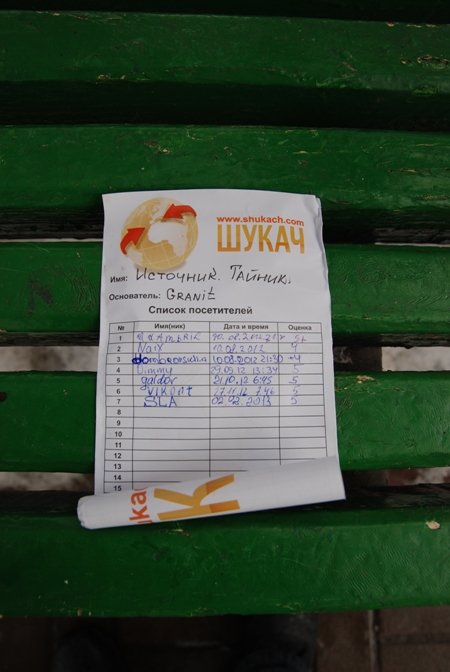 www.shukach.com
ШУКАЧ
Имя: Источник. Тайник.
Основатель: Granit
Список посетителей
№ Имя(ник) Дата и время Оценка
1 5+
2 12.08.2012 4
3 10.08.2012 21:30 4
4 Dimmy 29.09.12 13:34 5
5 galdor 21.10.12 6:45 5
6 Vikont 17.11.12 5
7 SLA 02.02.2013 5
8
9
10
11
12
13
14
15